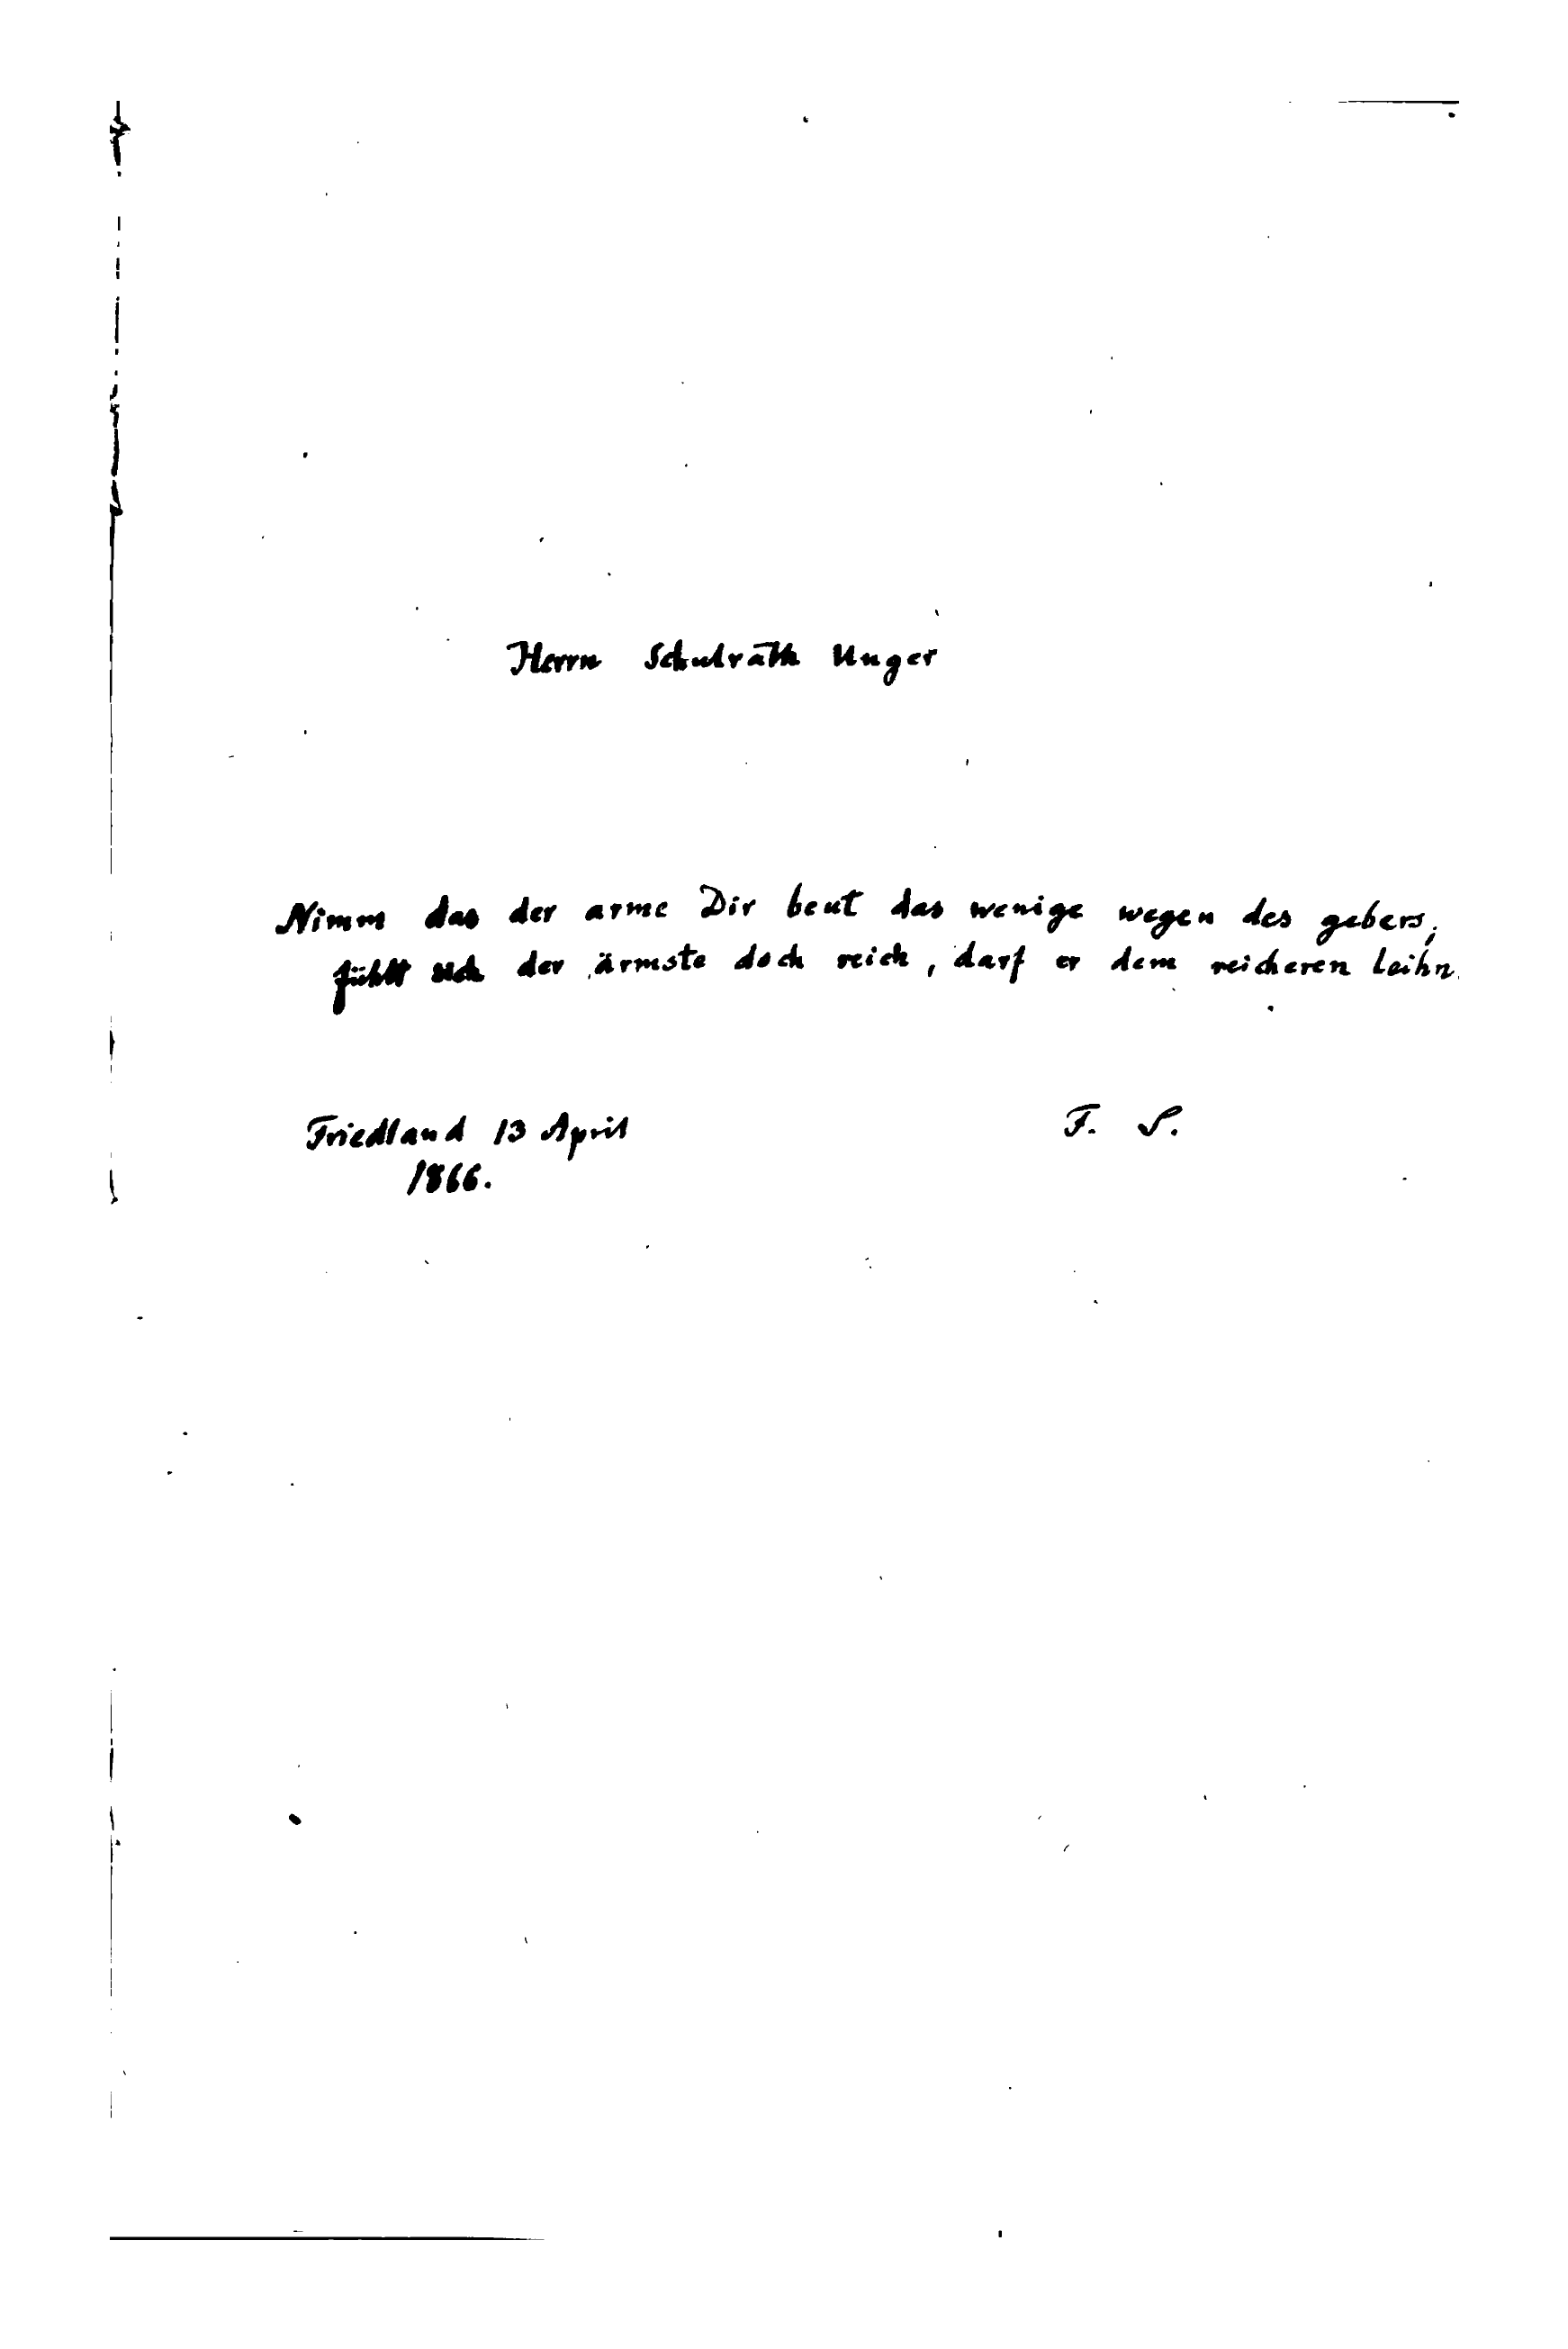 Herrn Schulrath Unger
Nimm das der arme Dir beut das wenige wegen des gebers,
fühlt sich der ärmste doch reich, darf er dem reicheren leihn.
Friedland 13 April
1866.
F. S.